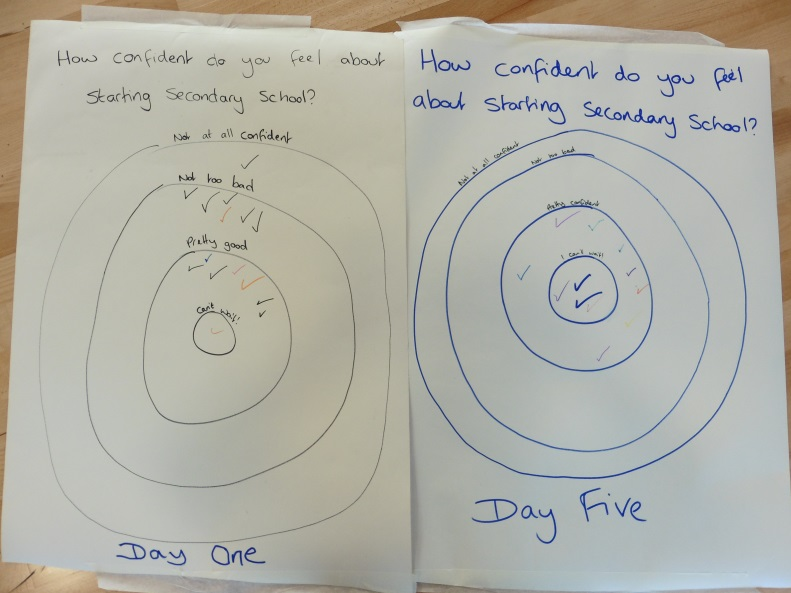 How confident do you feel about
starting Secondary School?
Not at all confident
Not too bad
Pretty good
Can't wait!
Day One
How confident do you feel
about starting Secondary School?
Not at all confident
Not too bad
Pretty confident
I can't wait!
Day Five